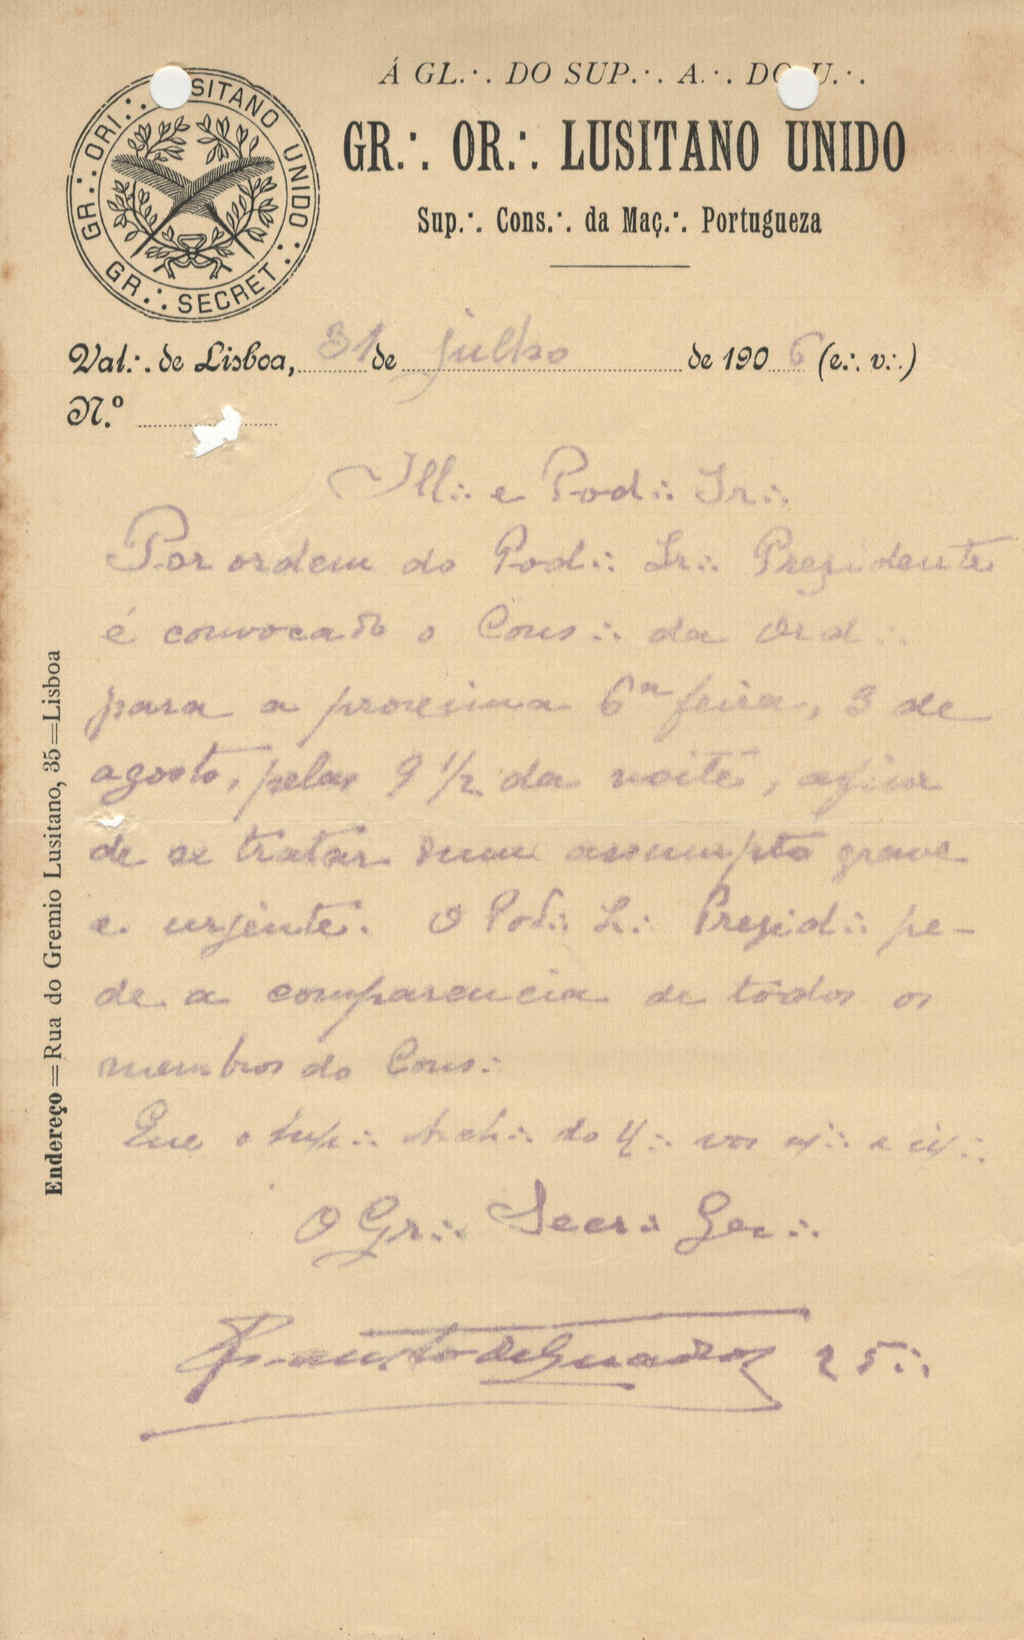 GR.∴ ORI.∴ LUSITANO UNIDO ∴ GR.∴ SECRET ∴
Á GL.∴ DO SUP.∴ A.∴ DO U.∴
GR.∴ OR.∴ LUSITANO UNIDO
Sup.∴ Cons.∴ da Maç.∴ Portugueza
Val.∴ de Lisboa, 31 de julho de 1906 (e.∴ v.∴)
N.º
Ill∴ e Pod∴ Ir∴
Por ordem do Pod∴ Ir∴ Prezidente
é convocado o Cons∴ da Ord∴
para a proxima 6ª feira, 3 de
agosto, pelas 9 1/2 da noite, afim
de se tratar dum assumpto grave
e urjente. O Pod∴ Ir∴ Prezid∴ pe-
de a comparencia de todos os
membros do Cons∴
Que o Sup∴ Arch∴ do U∴ vos
O Gr∴ Secr∴ Ger∴
Fausto de Quadros 25∴
Endereço=Rua do Gremio Lusitano, 35=Lisboa